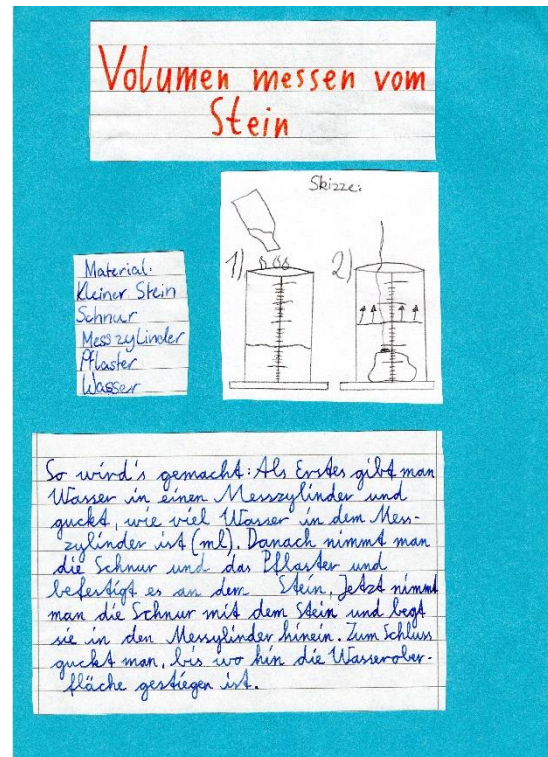 Volumen messen vom
Stein
Skizze:
1)
2)
Material:
Kleiner Stein
Schnur
Messzylinder
Pflaster
Wasser
So wird's gemacht: Als Erstes gibt man
Wasser in einen Messzylinder und
guckt, wie viel Wasser in dem Mes-
zylinder ist (ml). Danach nimmt man
die Schnur und das Pflaster und
befestigt es an dem Stein, Jetzt nimmt
man die Schnur mit dem Stein und legt
sie in den Messylinder hinein. Zum Schluss
guckt man, bis wo hin die Wasserober-
fläche gestiegen ist.